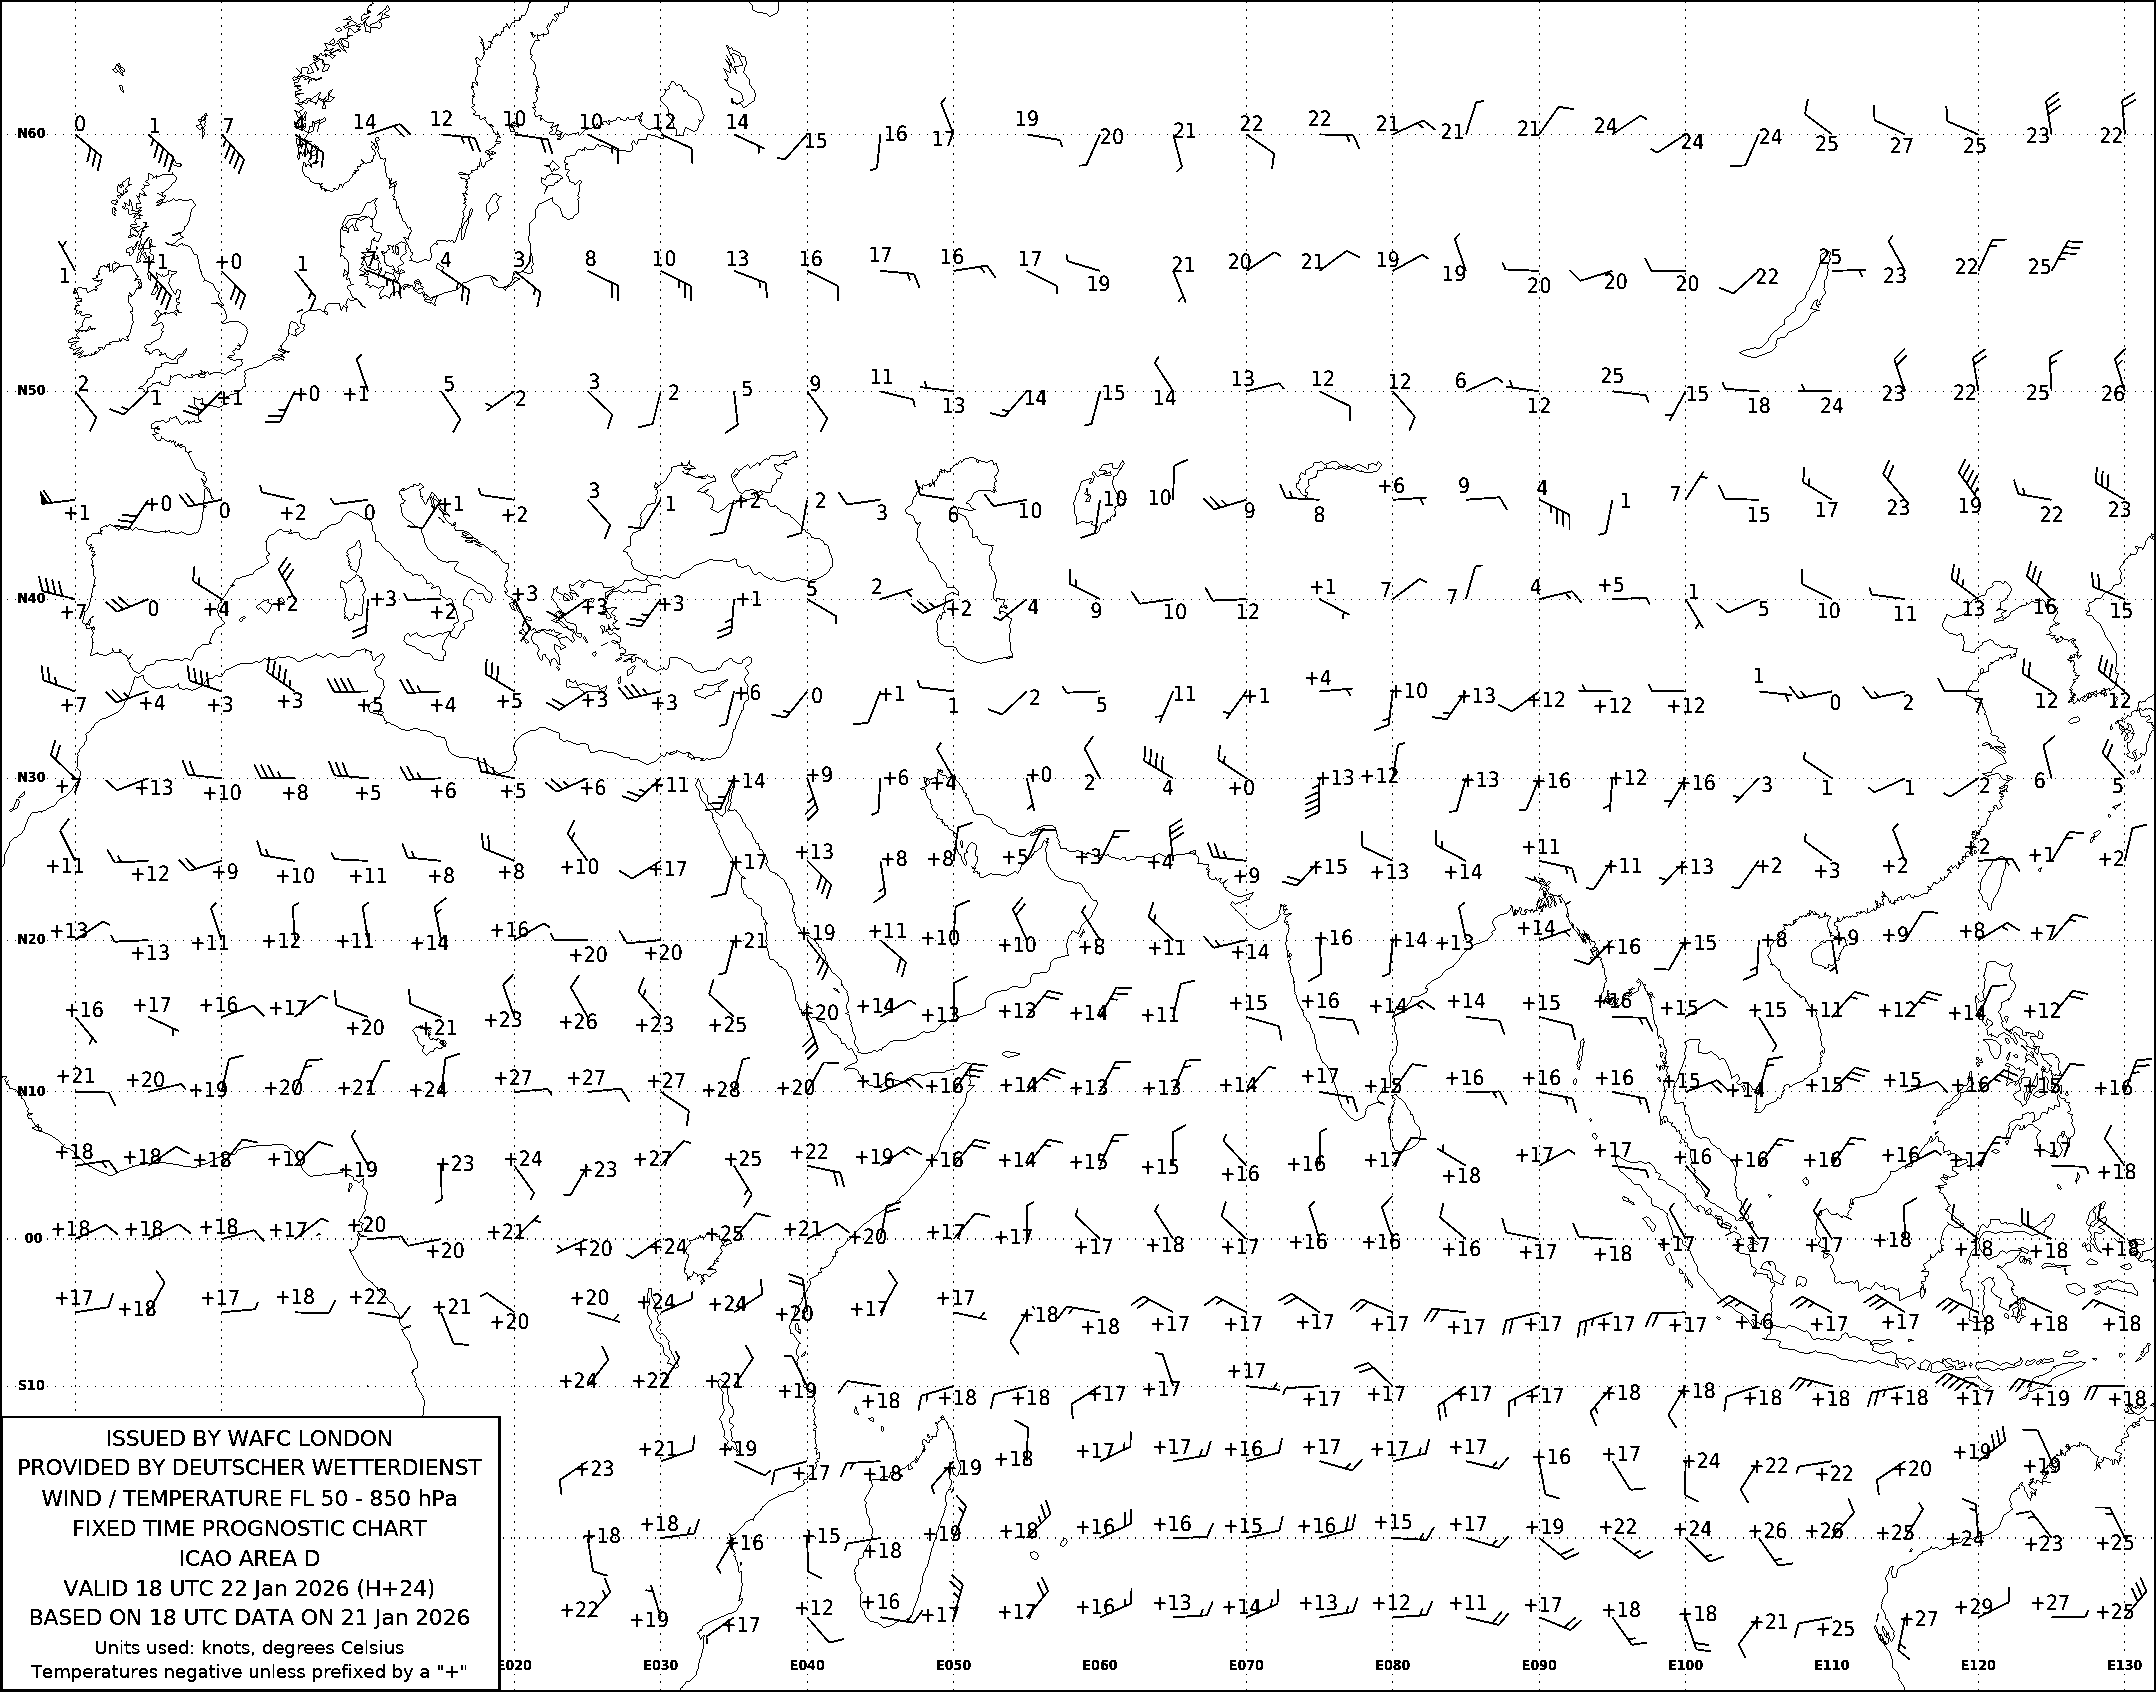 0 1 7 4 14 12 10 10 12 14 15 16 17 19 20 21 22 22 21 21 21 24 24 24 25 27 25 23 22
N60
1 +1 +0 1 7 4 3 8 10 13 16 17 16 17 19 21 20 21 19 19 20 20 20 22 25 23 22 25
N50
2 1 +1 +0 +1 5 2 3 2 5 9 11 13 14 15 14 13 12 12 6 12 25 15 18 24 23 22 25 26
+1 +0 0 +2 0 +1 +2 3 1 +2 2 3 6 10 10 10 9 8 +6 9 4 1 7 15 17 23 19 22 23
N40
+7 0 +4 +2 +3 +2 +3 +3 +3 +1 5 2 +2 4 9 10 12 +1 7 7 4 +5 1 5 10 11 13 16 15
+7 +4 +3 +3 +5 +4 +5 +3 +3 +6 0 +1 1 2 5 11 +1 +4 +10 +13 +12 +12 +12 1 0 2 7 12 12
N30
+7 +13 +10 +8 +5 +6 +5 +6 +11 +14 +9 +6 +4 +0 2 4 +0 +13 +12 +13 +16 +12 +16 3 1 1 2 6 5
+11 +12 +9 +10 +11 +8 +8 +10 +17 +17 +13 +8 +8 +5 +3 +4 +9 +15 +13 +14 +11 +11 +13 +2 +3 +2 +2 +1 +2
N20
+13 +13 +11 +12 +11 +14 +16 +20 +20 +21 +19 +11 +10 +10 +8 +11 +14 +16 +14 +13 +14 +16 +15 +8 +9 +9 +8 +7
+16 +17 +16 +17 +20 +21 +23 +26 +23 +25 +20 +14 +13 +13 +14 +11 +15 +16 +14 +14 +15 +16 +15 +15 +11 +12 +14 +12
N10
+21 +20 +19 +20 +21 +24 +27 +27 +27 +28 +20 +16 +16 +14 +13 +13 +14 +17 +15 +16 +16 +16 +15 +14 +15 +15 +16 +15 +16
+18 +18 +18 +19 +19 +23 +24 +23 +27 +25 +22 +19 +16 +14 +15 +15 +16 +16 +17 +18 +17 +17 +16 +16 +16 +16 +17 +17 +18
00
+18 +18 +18 +17 +20 +20 +21 +20 +24 +25 +21 +20 +17 +17 +17 +18 +17 +16 +16 +16 +17 +18 +17 +17 +17 +18 +18 +18 +18
+17 +18 +17 +18 +22 +21 +20 +20 +24 +24 +20 +17 +17 +18 +18 +17 +17 +17 +17 +17 +17 +17 +17 +16 +17 +17 +18 +18 +18
S10
+24 +22 +21 +19 +18 +18 +18 +17 +17 +17 +17 +17 +17 +17 +18 +18 +18 +18 +18 +17 +19 +18
+23 +21 +19 +17 +18 +19 +18 +17 +17 +16 +17 +17 +17 +16 +17 +24 +22 +22 +20 +19 +19
+18 +18 +16 +15 +18 +19 +18 +16 +16 +15 +16 +15 +17 +19 +22 +24 +26 +26 +25 +24 +23 +25
+22 +19 +17 +12 +16 +17 +17 +16 +13 +14 +13 +12 +11 +17 +18 +18 +21 +25 +27 +29 +27 +25
ISSUED BY WAFC LONDON
PROVIDED BY DEUTSCHER WETTERDIENST
WIND / TEMPERATURE FL 50 - 850 hPa
FIXED TIME PROGNOSTIC CHART
ICAO AREA D
VALID 18 UTC 22 Jan 2026 (H+24)
BASED ON 18 UTC DATA ON 21 Jan 2026
Units used: knots, degrees Celsius
Temperatures negative unless prefixed by a "+"
E020 E030 E040 E050 E060 E070 E080 E090 E100 E110 E120 E130